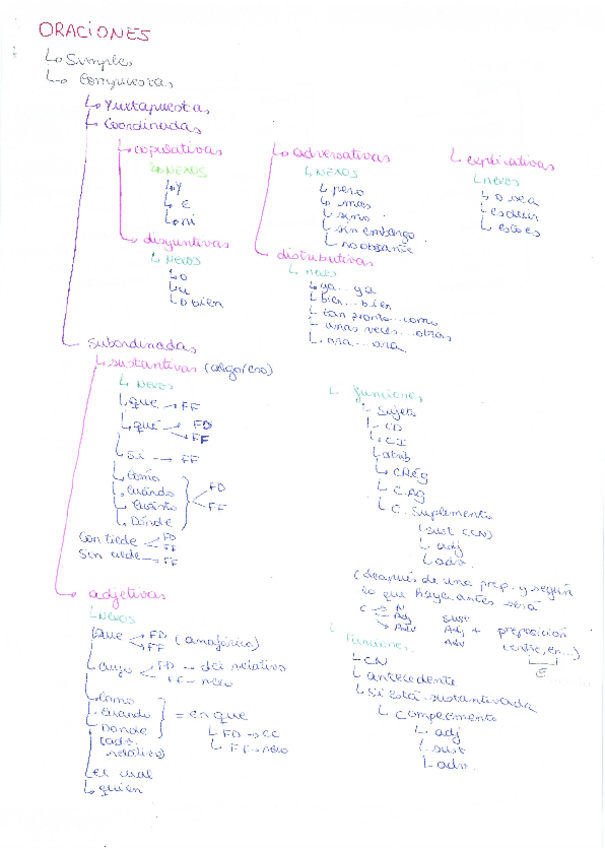 ORACIONES
Simples
Compuestas
Yuxtapuestas
Coordinadas
copulativas
NEXOS
Y
E
ni
disyuntivas
NEXOS
o
u
o bien
adversativas
NEXOS
pero
mas
sino
sin embargo
no obstante
distributivas
nexos
ya... ya
bien... bien
tan pronto... como
unas veces... otras
ora... ora
explicativas
NEXOS
o sea
es decir
esto es
subordinadas
sustantivas (algo/eso)
NEXOS
que → FF
qué → FD
→ FF
Si → FF
Cómo
Cuándo
Cuánto
Dónde
FD
FF
Con tilde FD
FF
Sin tilde → FF
funciones
Sujeto
CD
CI
atrib
CREG
C.AG
C. Suplemento
(sust CCN)
adj
adv.
(después de una prep. y según
lo que haya antes será
C N
Adj
Adv
sust
Adj + preposición
Adv
adjetivas
NEXOS
Que → FD (anafórico)
→ FF
cuyo → FD → del relativo
FF → nexo
Como
Cuando
Donde
(adv.
relativo)
= en que
FD → CC
FF → nexo
el cual
quien
funciones
CN
antecedente
Si está sustantivada
Complemento
adj
sust
adv.